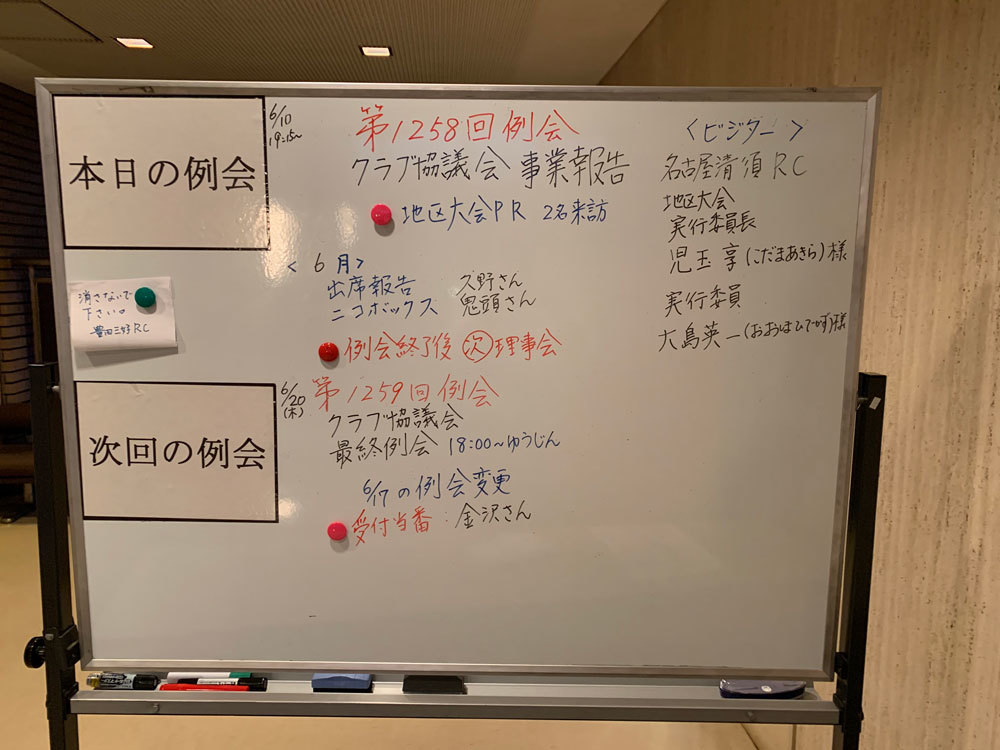 本日の例会
6/10
19:15~
第1258回例会
クラブ協議会 事業報告
地区大会PR 2名来訪
<6月>
出席報告 久野さん
ニコボックス 鬼頭さん
例会終了後 次 理事会
<ビジター>
名古屋清須RC
地区大会
実行委員長
児玉 享(こだまあきら)様
実行委員
大島英一(おおしまひでかず)様
消さないで
下さい。
豊田三好RC
次回の例会
6/20
(木)
第1259回例会
クラブ協議会
最終例会 18:00~ゆうじん
6/17の例会変更
受付当番:金沢さん